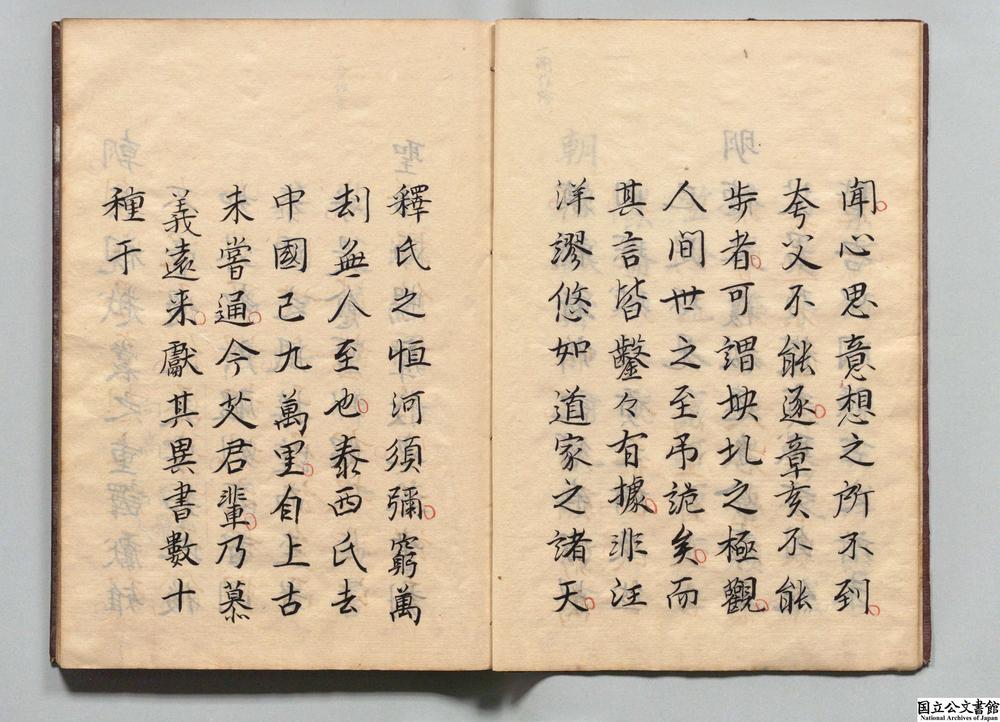 聞心思意想之所不到
夸父不能逐章亥不能
步者可謂坱圠之極觀
人間世之至吊詭矣而
其言皆鑿々有據非汪
洋謬悠如道家之諸天
釋氏之恒河須彌窮萬
刦無人至也泰西氏去
中國已九萬里自上古
未嘗通今艾君輩乃慕
義遠来獻其異書數十
種于
国立公文書館
National Archives of Japan